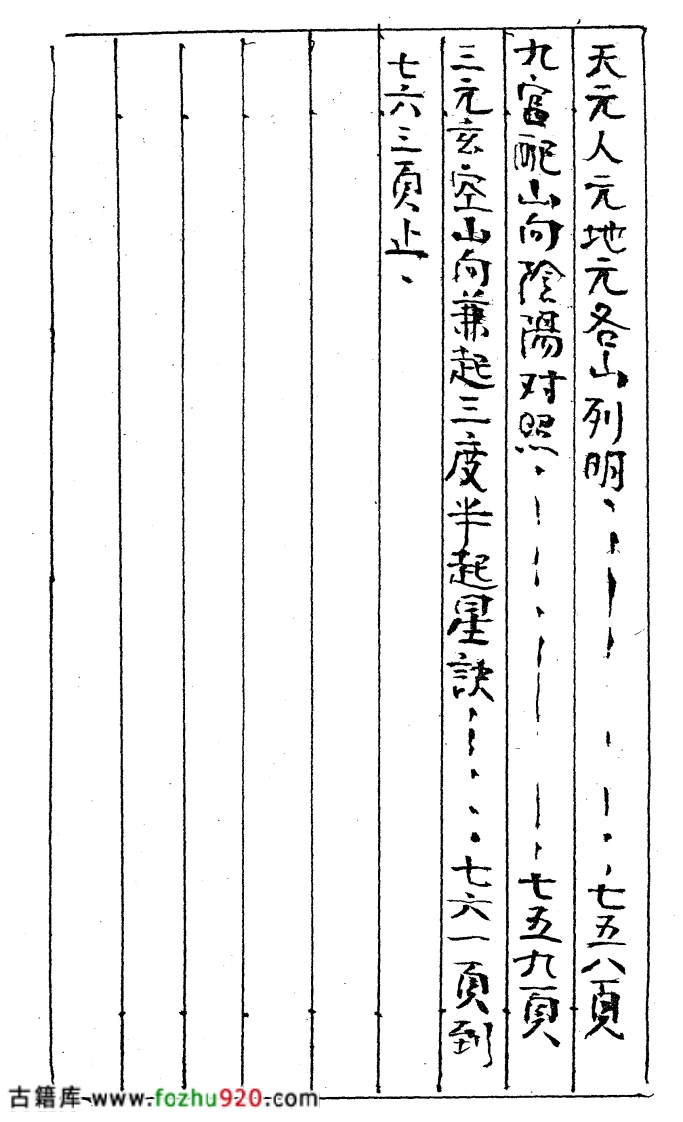 天元人元地元各山列明、……七五八頁
九宮配山向陰陽对照……七五九頁
三元玄空山向兼起三度半起星訣……七六一頁到
七六三頁止、
古籍库 www.fozhu920.com